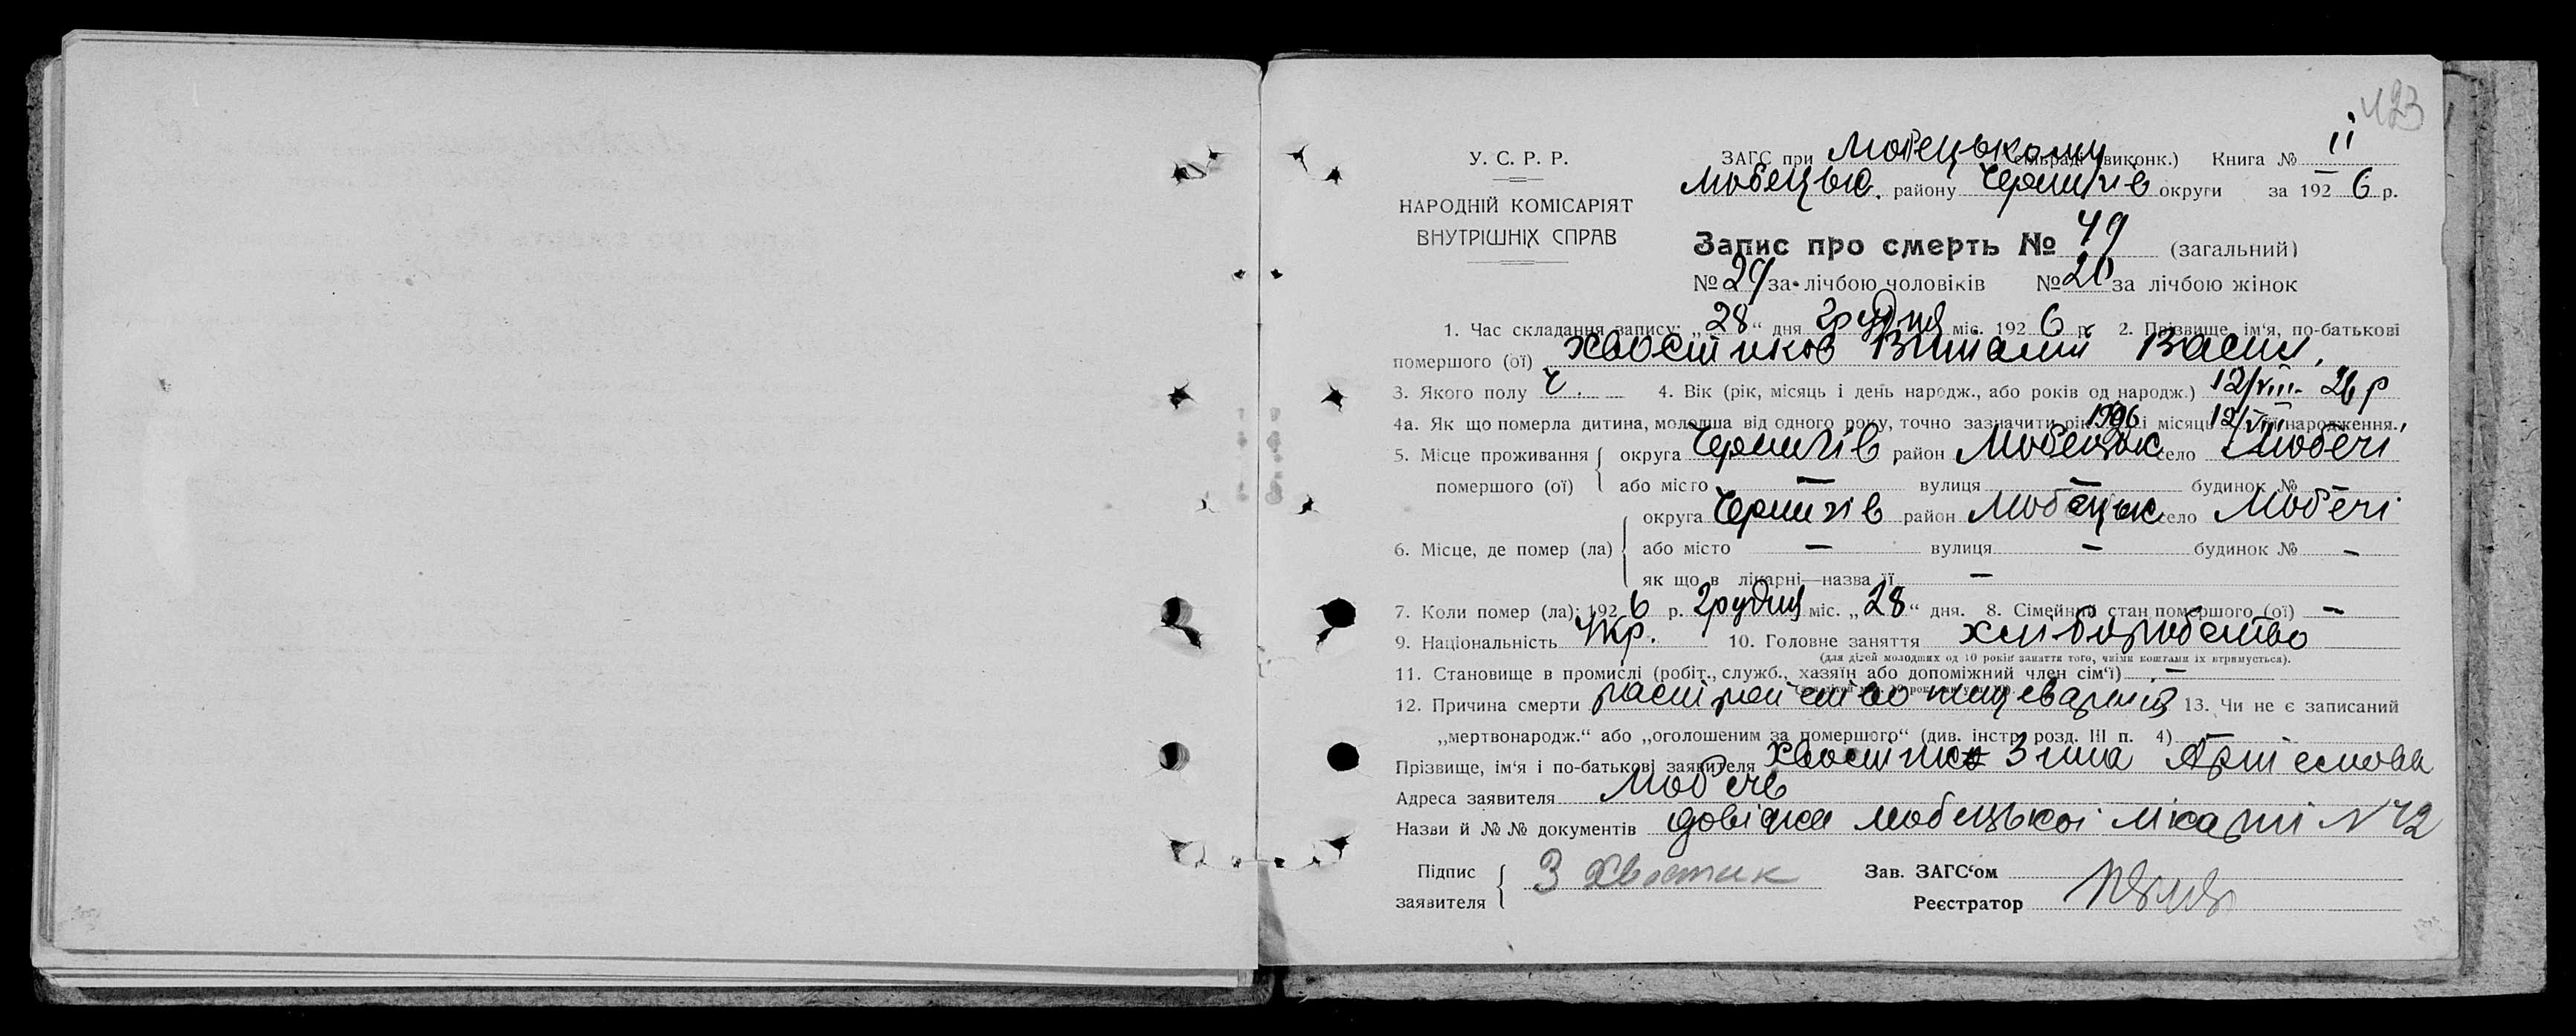 423
У. С. Р. Р.
НАРОДНІЙ КОМІСАРІЯТ
ВНУТРІШНІХ СПРАВ
ЗАГС при Любецькому сільраді (виконк.) Книга № II
Любецьк. району Чернігів округи за 1926 р.
Запис про смерть № 49 (загальний)
№ 29 за лічбою чоловіків № 20 за лічбою жінок
1. Час складання запису: „28“ дня грудня міс. 1926 р. 2. Прізвище, ім‘я, по-батькові
помершого (ої) Хвостиков Виталий Васил.
3. Якого полу ч. 4. Вік (рік, місяць і день народж., або років од народж.) 12/VIII 26 р
4а. Як що померла дитина, молодша від одного року, точно зазначити рік 1926 і місяць 12/VIII народження.
5. Місце проживання округа Чернігів район Любецьк село Любечі
помершого (ої) або місто — вулиця — будинок № —
округа Чернігів район Любецьк село Любечі
6. Місце, де помер (ла) або місто — вулиця — будинок № —
як що в лікарні—назва її —
7. Коли помер (ла): 1926 р. грудня міс. „28“ дня. 8. Сімейний стан помершого (ої) —
9. Національність Укр. 10. Головне заняття хліборобство
(для дітей молодших од 10 років заняття того, чиїми коштами їх втримується).
11. Становище в промислі (робіт., служб., хазяїн або допоміжний член сім‘ї) —
12. Причина смерти растройство пищеварения 13. Чи не є записаний
„мертвонародж.“ або „оголошеним за помершого“ (див. інстр. розд. III п. 4)
Прізвище, ім‘я і по-батькові заявителя Хвостик Зина Артемова
Адреса заявителя Любеч
Назви й №№ документів довідка Любецької лікарні N 42
Підпис
заявителя З Хвостик
Зав. ЗАГС‘ом
Реєстратор